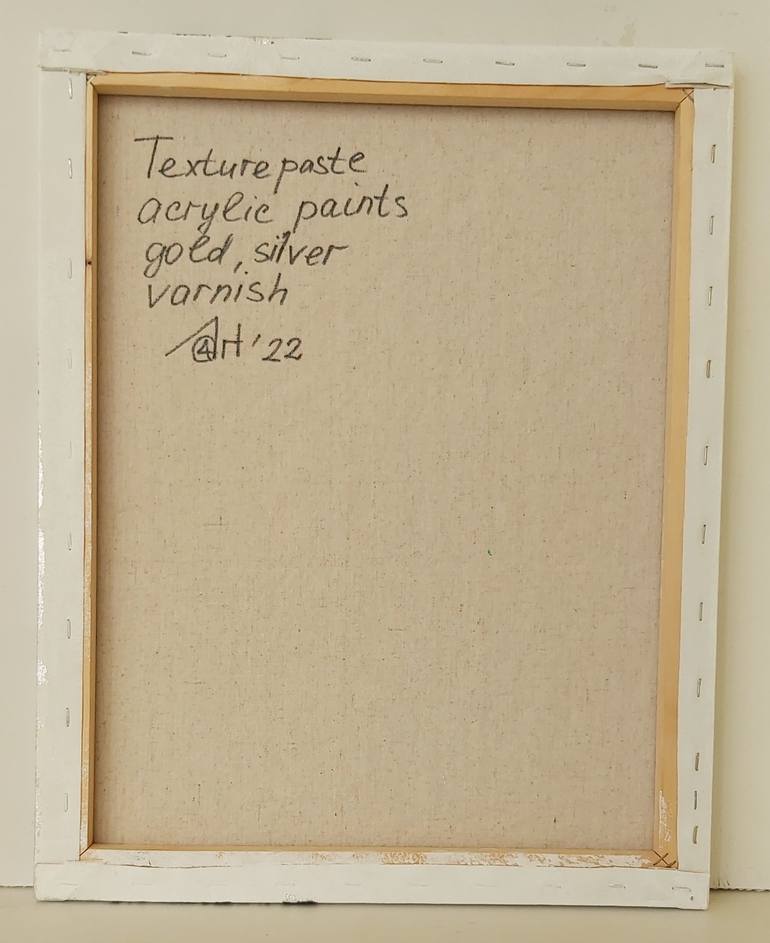 Texture paste
acrylic paints
gold, silver
varnish
Art '22